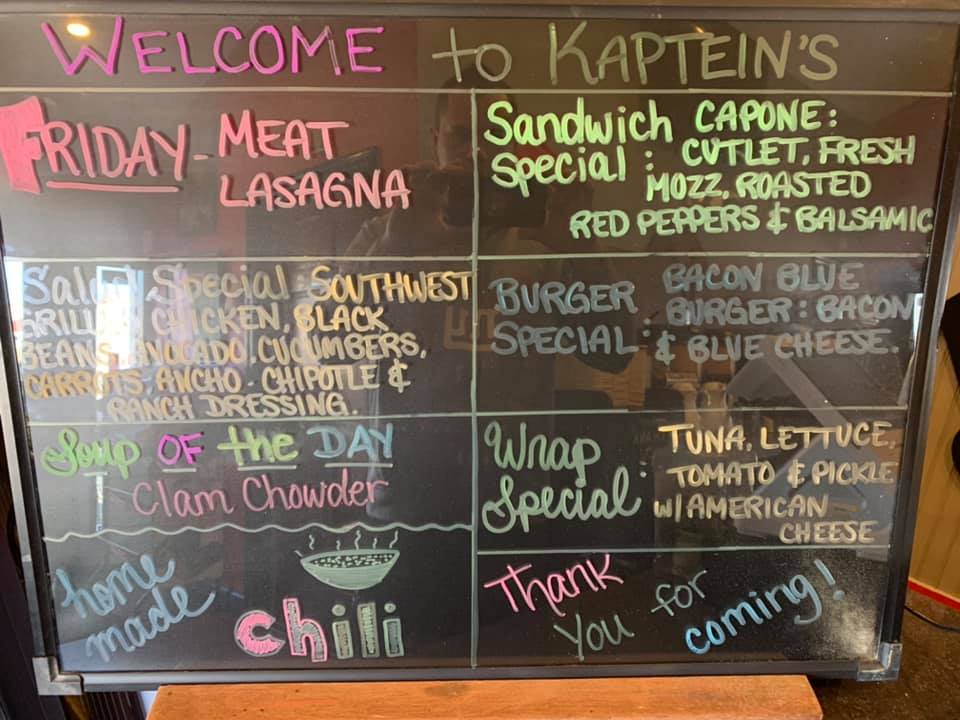 WELCOME to KAPTEIN'S
FRIDAY - MEAT
LASAGNA
Sandwich CAPONE:
Special: CUTLET, FRESH
MOZZ, ROASTED
RED PEPPERS & BALSAMIC
Salad Special: SOUTHWEST
GRILLED CHICKEN, BLACK
BEANS, AVOCADO, CUCUMBERS,
CARROTS, ANCHO - CHIPOTLE &
RANCH DRESSING.
BURGER BACON BLUE
SPECIAL: BURGER: BACON
& BLUE CHEESE.
Soup OF the DAY
Clam Chowder
Wrap Special: TUNA, LETTUCE,
TOMATO & PICKLE
W/ AMERICAN
CHEESE
home
made
chili
Thank
You for
coming!